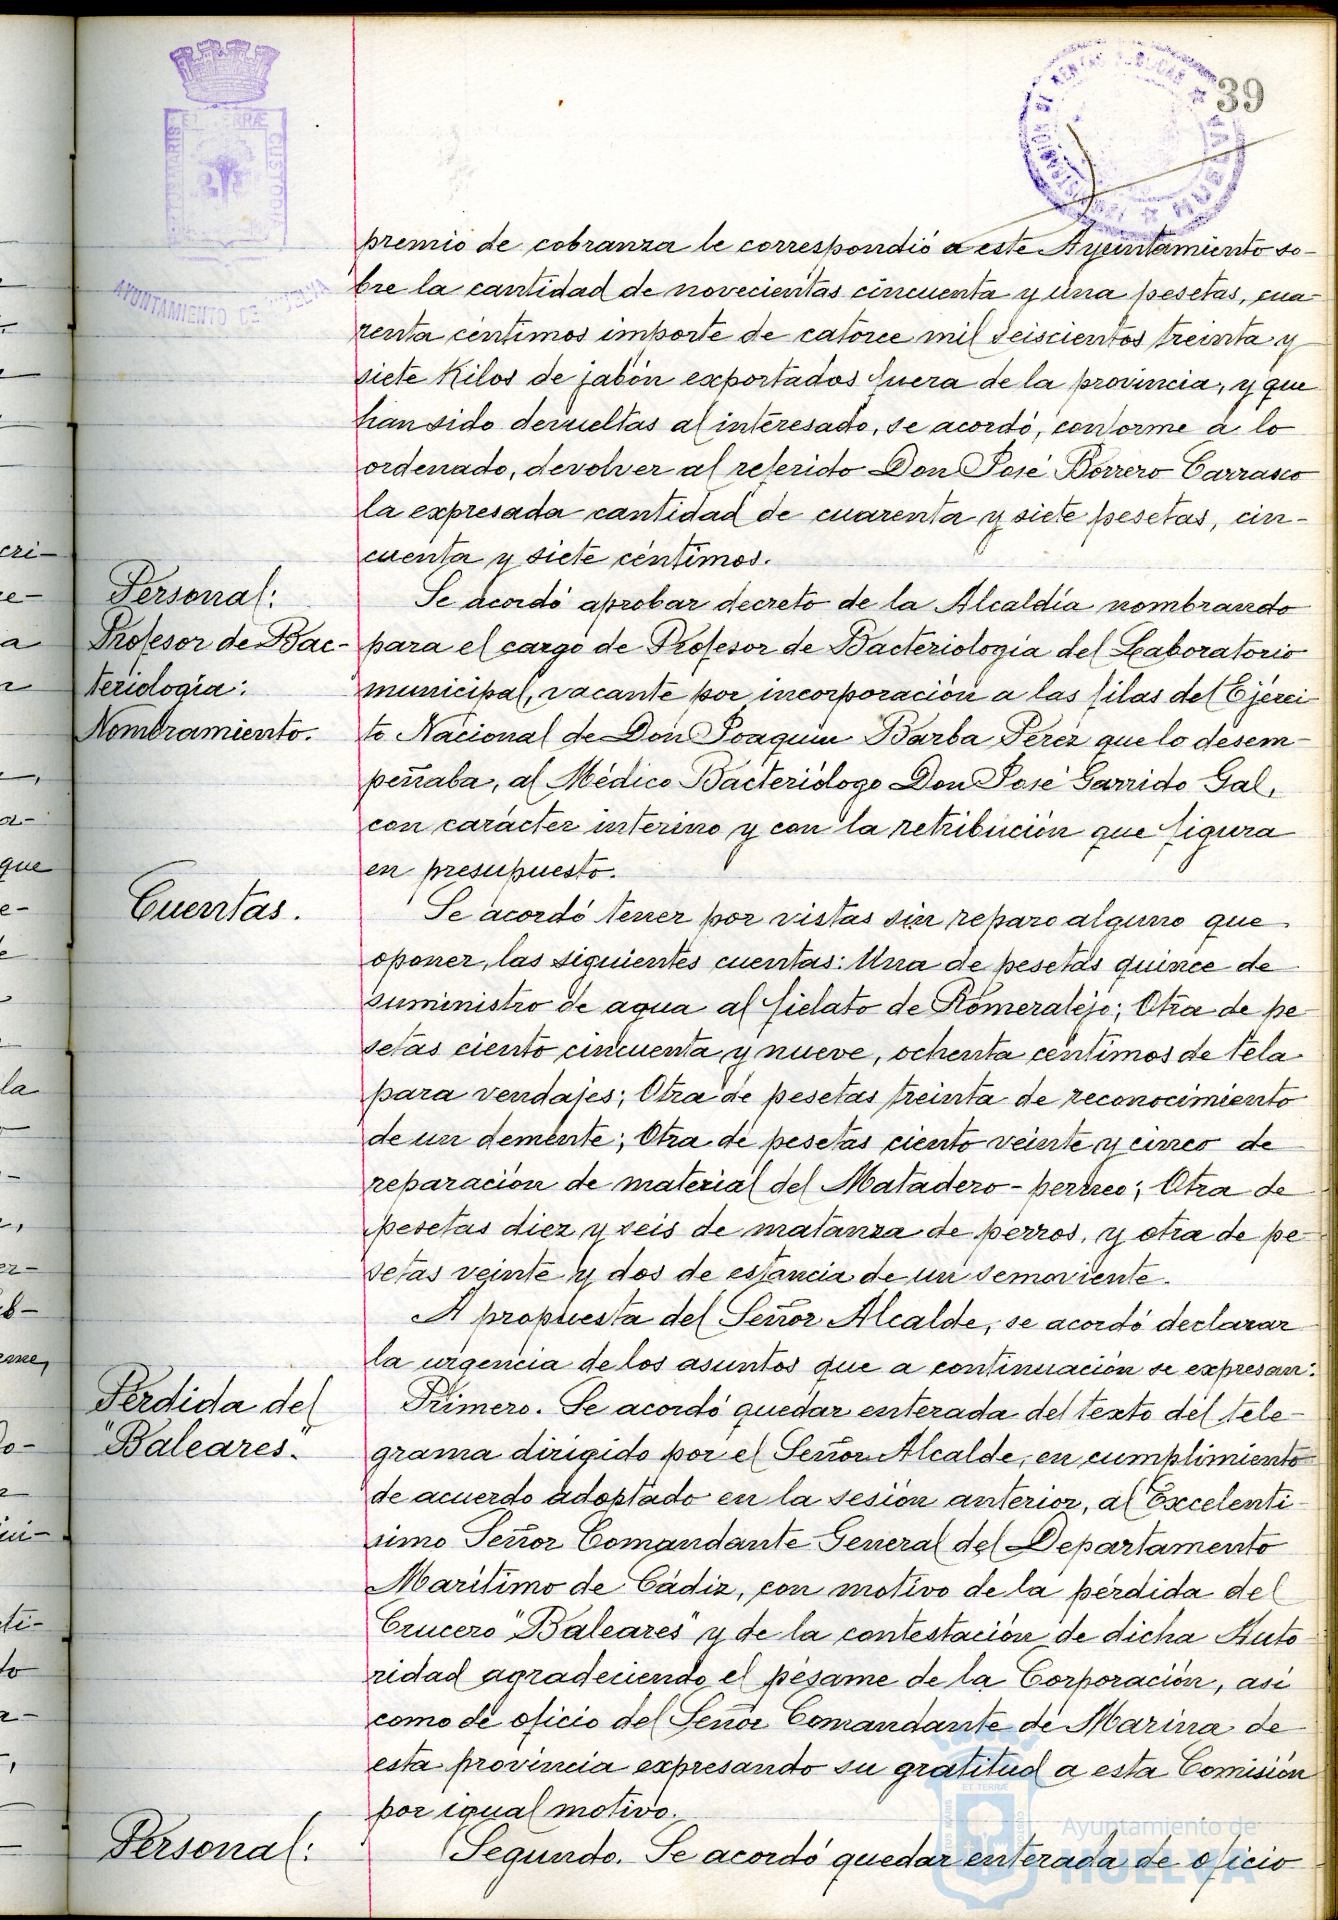 39
ET TERRÆ
CUSTODIA
MARIS
AYUNTAMIENTO DE HUELVA
ADMINISTRACIÓN DE RENTAS PUBLICAS
HUELVA
premio de cobranza le correspondió a este Ayuntamiento so-
bre la cantidad de novecientas cincuenta y una pesetas, cua-
renta céntimos importe de catorce mil seiscientos treinta y
siete Kilos de jabón exportados fuera de la provincia, y que
han sido devueltas al interesado, se acordó, conforme a lo
ordenado, devolver al referido Don José Borrero Carrasco
la expresada cantidad de cuarenta y siete pesetas, cin-
cuenta y siete céntimos.
Personal:
Profesor de Bac-
teriología:
Nombramiento.
Se acordó aprobar decreto de la Alcaldía nombrando
para el cargo de Profesor de Bacteriología del Laboratorio
municipal, vacante por incorporación a las filas del Ejérci-
to Nacional de Don Joaquin Barba Pérez que lo desem-
peñaba, al Médico Bacteriólogo Don José Garrido Gal,
con carácter interino y con la retribución que figura
en presupuesto.
Cuentas.
Se acordó tener por vistas sin reparo alguno que
oponer, las siguientes cuentas: Una de pesetas quince de
suministro de agua al fielato de Romeralejo; Otra de pe-
setas ciento cincuenta y nueve, ochenta céntimos de tela
para vendajes; Otra de pesetas treinta de reconocimiento
de un demente; Otra de pesetas ciento veinte y cinco de
reparación de material del Matadero-perneo; Otra de
pesetas diez y seis de matanza de perros, y otra de pe-
setas veinte y dos de estancia de un semoviente.
A propuesta del Señor Alcalde, se acordó declarar
la urgencia de los asuntos que a continuación se expresan:
Pérdida del
"Baleares".
Primero. Se acordó quedar enterada del texto del tele-
grama dirigido por el Señor Alcalde, en cumplimiento
de acuerdo adoptado en la sesión anterior, al Excelentí-
simo Señor Comandante General del Departamento
Marítimo de Cádiz, con motivo de la pérdida del
Crucero "Baleares" y de la contestación de dicha Auto-
ridad agradeciendo el pésame de la Corporación, así
como de oficio del Señor Comandante de Marina de
esta provincia expresando su gratitud a esta Comisión
por igual motivo.
Personal:
Segundo. Se acordó quedar enterada de oficio
Ayuntamiento de
HUELVA